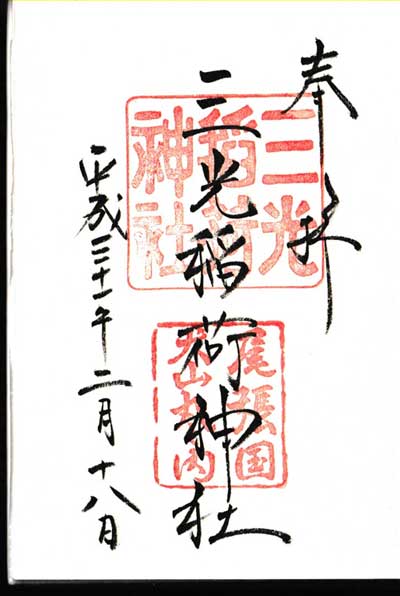 奉拝
三光稲荷神社
平成三十一年二月十八日
三光
稲荷
神社
尾張国